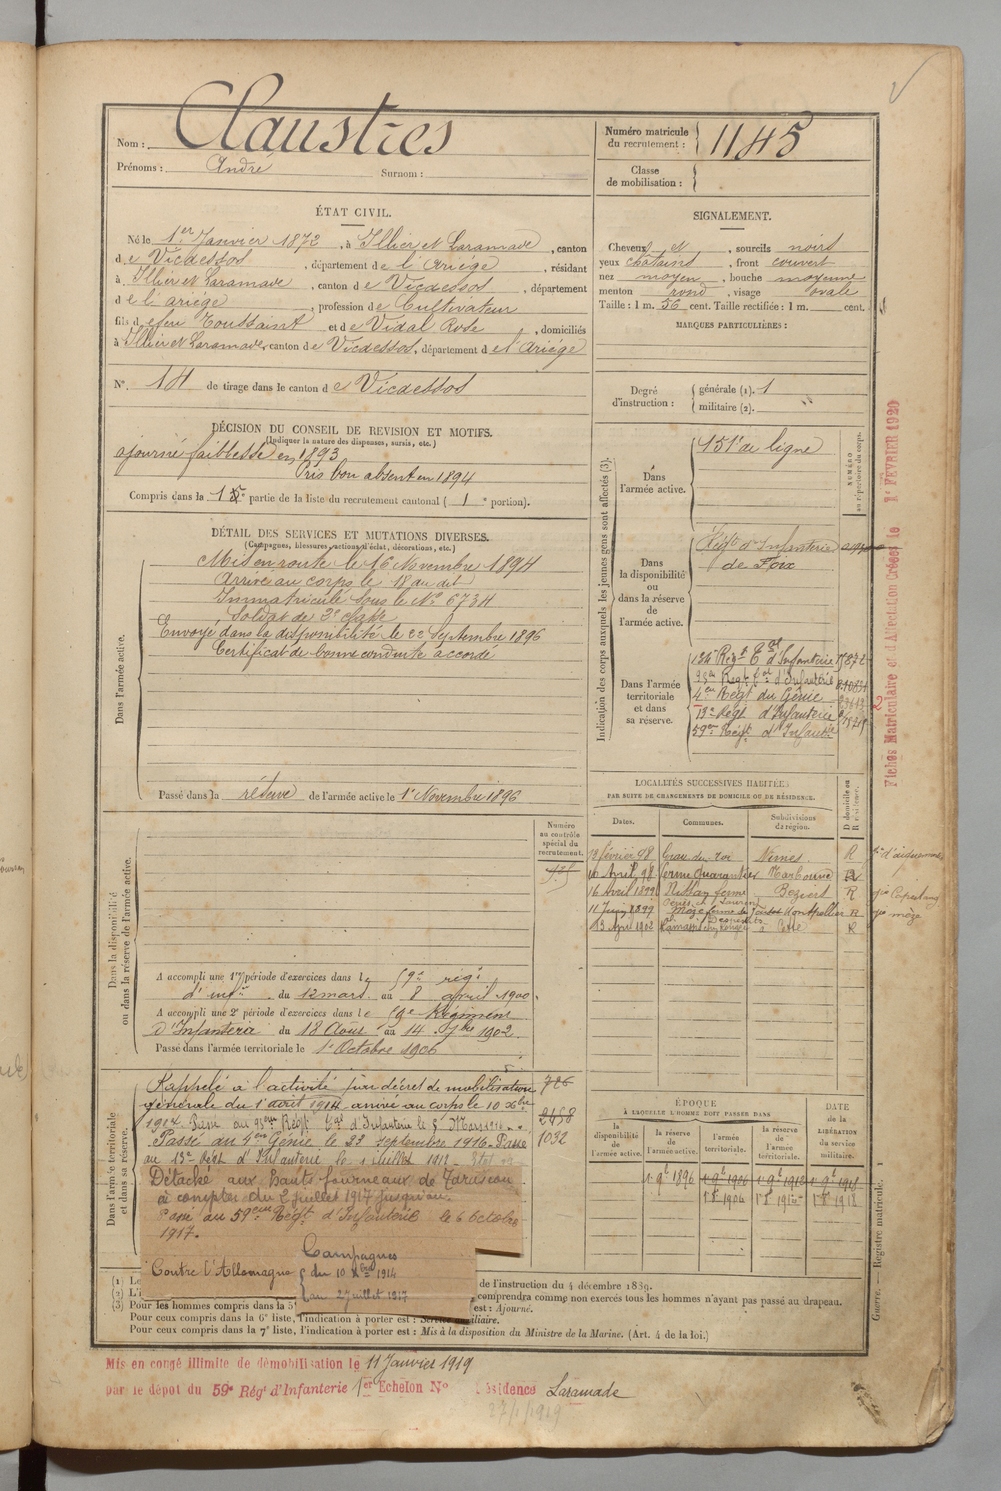 Nom : Claustres
Prénoms : André Surnom :
Numéro matricule du recrutement : 1145
Classe de mobilisation :
ÉTAT CIVIL.
Né le 1er Janvier 1872, à Illier et Laramade, canton
de Vicdessos, département de l'Ariége, résidant
à Illier et Laramade, canton de Vicdessos, département
de l'ariége, profession de Cultivateur
fils de feu Toussaint et de Vidal Rose, domiciliés
à Illier et Laramade, canton de Vicdessos, département de l'Ariége
N° 14 de tirage dans le canton de Vicdessos
SIGNALEMENT.
Cheveux et, sourcils noirs
yeux châtains, front couvert
nez moyen, bouche moyenne
menton rond, visage ovale
Taille : 1 m. 56 cent. Taille rectifiée : 1 m. cent.
MARQUES PARTICULIÈRES :
Degré d'instruction : générale (1). 1
militaire (2).
DÉCISION DU CONSEIL DE REVISION ET MOTIFS.
(Indiquer la nature des dispenses, sursis, etc.)
ajourné faiblesse en 1893
Pris bon absent en 1894
Compris dans la 1e partie de la liste du recrutement cantonal ( 1 e portion).
DÉTAIL DES SERVICES ET MUTATIONS DIVERSES.
(Campagnes, blessures, actions d'éclat, décorations, etc.)
Dans l'armée active.
Mis en route le 16 Novembre 1894
Arrivé au corps le 18 au dit
Immatriculé sous le N° 6734
Soldat de 2e classe
Envoyé dans la disponibilité le 22 Septembre 1896
Certificat de bonne conduite accordé
Passé dans la réserve de l'armée active le 1er Novembre 1896
Indication des corps auxquels les jeunes gens sont affectés (3).
NUMÉRO au répertoire du corps.
Dans l'armée active.
151e de ligne
Dans la disponibilité ou dans la réserve de l'armée active.
Régt d'Infanterie
de Foix
Dans l'armée territoriale et dans sa réserve.
134e Régt Tal d'Infanterie
95em Regt Tal d'Infanterie
4em Régt du Génie
13e Régt d'Infanterie
59em Régt d'Infantie
Fiches Matriculaire et d'Affectation Créées le 1er FÉVRIER 1920
LOCALITÉS SUCCESSIVES HABITÉES
PAR SUITE DE CHANGEMENTS DE DOMICILE OU DE RÉSIDENCE.
D domicile ou R résidence.
Dates. Communes. Subdivisions de région.
12 février 98 Grau du Roi Nimes R
10 Avril 98 ferme quarantes Narbonne R
16 Avril 1899 Nissan ferme Beziers R
11 Juin 1899 Mèze Montpellier R
13 Avril 1902 à Cette R
Numéro au contrôle spécial du recrutement.
Dans la disponibilité ou dans la réserve de l'armée active.
A accompli une 1re période d'exercices dans le 9e régt
d'inf. du 12 mars au 8 avril 1900.
A accompli une 2e période d'exercices dans le 9e Régiment
d'Infanterie du 18 Aout au 14 7bre 1902.
Passé dans l'armée territoriale le 1er Octobre 1906
Dans l'armée territoriale et dans sa réserve.
Rappelé à l'activité par décret de mobilisation
générale du 1er août 1914 arrivé au corps le 10 Xbre
1914 Passé au 95em Régt Tal d'Infanterie le 5 Mars 1916
Passé au 4em Génie le 22 septembre 1916 Passé
au 13e Régt d'Infanterie le 1 Juillet 1917
Détaché aux hauts fourneaux de Tarascon
à compter du 2 Juillet 1917 jusqu'au.
Passé au 59em Régt d'Infanterie le 6 Octobre
1917.
Campagnes
Contre l'Allemagne du 10 Xbre 1914
au 2 Juillet 1917
726
2458
1032
ÉPOQUE
À LAQUELLE L'HOMME DOIT PASSER DANS
DATE de la LIBÉRATION du service militaire.
la disponibilité de l'armée active. la réserve de l'armée active. l'armée territoriale. la réserve de l'armée territoriale.
1 9e 1896
(1) Le
de l'instruction du 4 décembre 1889.
(2) L'i
comprendra comme non exercés tous les hommes n'ayant pas passé au drapeau.
(3) Pour les hommes compris dans la 5e
est : Ajourné.
Pour ceux compris dans la 6e liste, l'indication à porter est : Service auxiliaire.
Pour ceux compris dans la 7e liste, l'indication à porter est : Mis à la disposition du Ministre de la Marine. (Art. 4 de la loi.)
Guerre. — Registre matricule. 1
Mis en congé illimité de démobilisation le 11 Janvier 1919
par le dépôt du 59e Régt d'Infanterie 1er Echelon No Résidence Laramade
27/1/1919